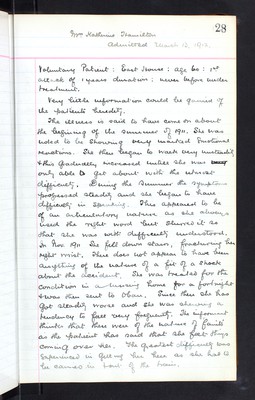 28
Mrs Hamilton
Admitted March 12. 1912.
Voluntary Patient: East House: age 60: 1st
attack of 1 years duration; never before under
treatment.
Very little information could be gained of
the patient's heredity.
The illness is said to have come on about
the beginning of the summer of 1911. She was
noted to be showing very marked emotional
. She then began to walk very unsteadily
& this gradually increased until she was
only able to get about with the utmost
difficulty. During the summer the symptoms
progressed steadily and she began to have
difficulty in speaking. This appeared to be
of an articulatory nature as she always
used the right word but slurred it so
that she was with difficulty understood.
In Nov. 1911 she fell down stairs, fracturing her
right wrist. There does not appear to have been
anything of the nature of a fit or a shock
about the accident. She was treated for the
condition in a nursing home for a fortnight
& was then sent to Oban. Since then she has
got steadily worse and she was showing a
tendency to fall very frequently. The informant
thinks that these were of the nature of faints
as the patient has said that she felt things
coming over her. The greatest difficulty was
experienced in getting her here as she had to
be carried in & out of the train.